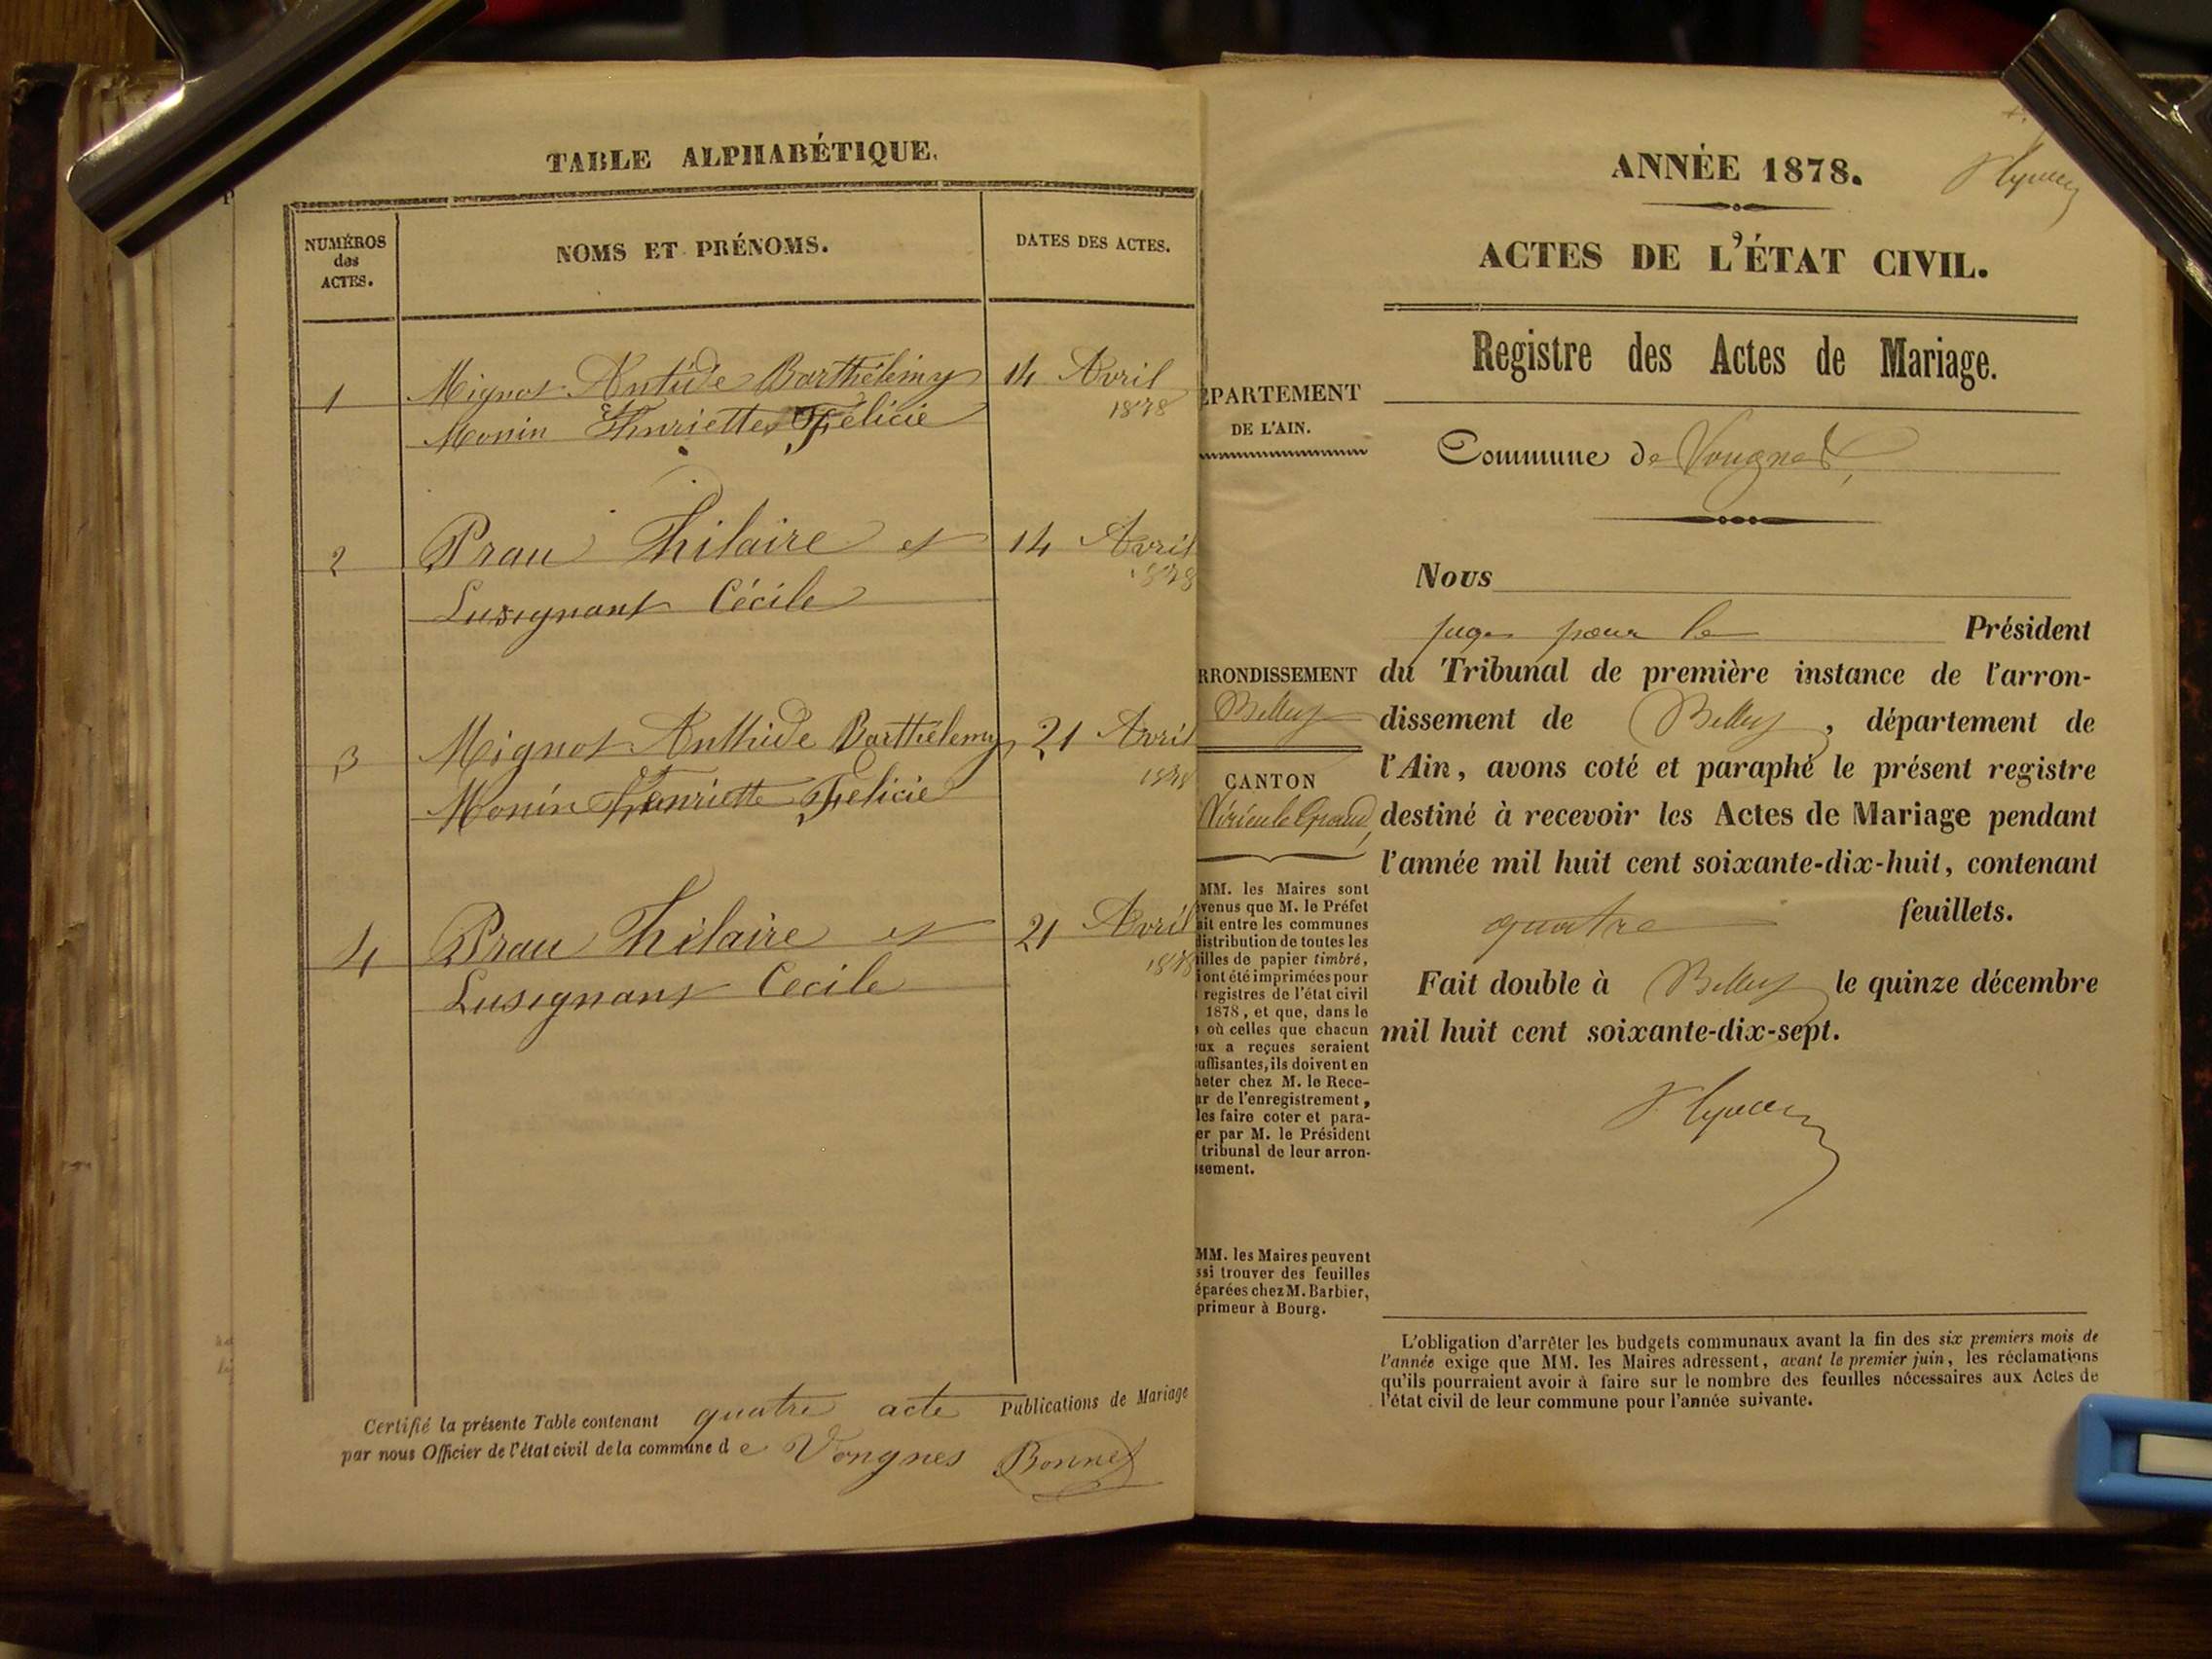 TABLE ALPHABÉTIQUE.
NUMÉROS
des
ACTES.
NOMS ET PRÉNOMS.
DATES DES ACTES.
1
Mignot Antide Barthélemy
14 Avril
1878
et
Monin Henriette Félicie
2
Prau hilaire et
14 Avril
1878
Lusignant Cécile
3
Mignot Anthide Barthélemy
21 Avril
1878
et
Monin henriette Félicie
4
Prau hilaire et
21 Avril
1878
Lusignant Cecile
Certifié la présente Table contenant quatre acte Publications de Mariage
par nous Officier de l'état civil de la commune d e Vongnes Bonnet
ANNÉE 1878.
ACTES DE L'ÉTAT CIVIL.
Registre des Actes de Mariage.
ÉPARTEMENT
DE L'AIN.
Commune de Vongnes
Nous
juge pour le Président
RRONDISSEMENT
Belley
du Tribunal de première instance de l'arron-
dissement de Belley, département de
l'Ain, avons coté et paraphé le présent registre
destiné à recevoir les Actes de Mariage pendant
l'année mil huit cent soixante-dix-huit, contenant
quatre feuillets.
Fait double à Belley le quinze décembre
mil huit cent soixante-dix-sept.
CANTON
Virieu le Grand
MM. les Maires sont
venus que M. le Préfet
ait entre les communes
distribution de toutes les
illes de papier timbré,
i ont été imprimées pour
registres de l'état civil
1878, et que, dans le
s où celles que chacun
ux a reçues seraient
uffisantes, ils doivent en
heter chez M. le Rece-
ur de l'enregistrement,
les faire coter et para-
er par M. le Président
tribunal de leur arron-
ssement.
MM. les Maires peuvent
ssi trouver des feuilles
éparées chez M. Barbier,
primeur à Bourg.
L'obligation d'arrêter les budgets communaux avant la fin des six premiers mois de
l'année exige que MM. les Maires adressent, avant le premier juin, les réclamations
qu'ils pourraient avoir à faire sur le nombre des feuilles nécessaires aux Actes de
l'état civil de leur commune pour l'année suivante.